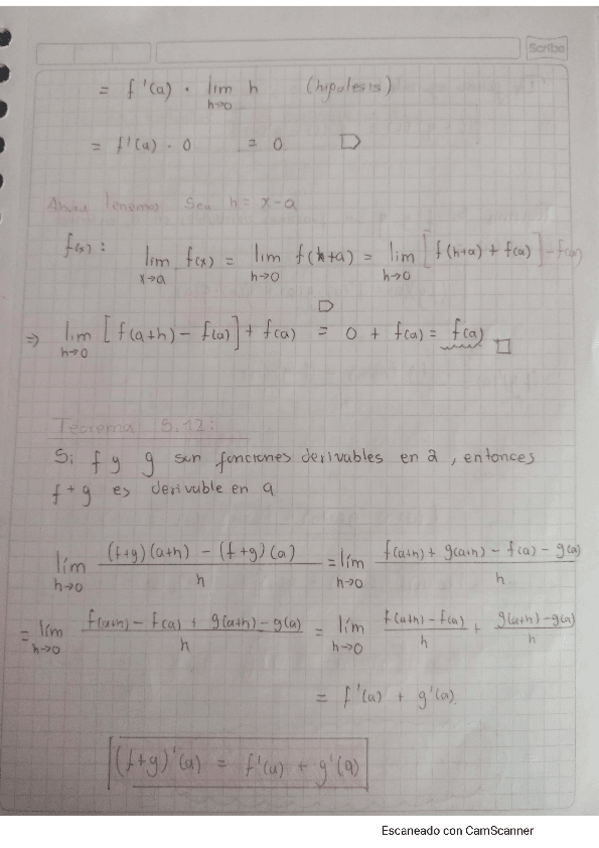 Scribe
= f'(a) · lím h→0 h (hipotesis)
= f'(a) · 0 = 0
Ahora tenemos Sea h = x-a
f(x): lím x→a f(x) = lím h→0 f(h+a) = lím h→0 [f(h+a) + f(a)] - f(a)
⇒ lím h→0 [f(a+h) - f(a)] + f(a) = 0 + f(a) = f(a) □
Teorema 5.12:
Si f y g son funciones derivables en a, entonces
f+g es derivable en a
lím h→0 (f+g)(a+h) - (f+g)(a) / h = lím h→0 f(a+h) + g(a+h) - f(a) - g(a) / h
= lím h→0 f(a+h) - f(a) + g(a+h) - g(a) / h = lím h→0 f(a+h) - f(a) / h + g(a+h) - g(a) / h
= f'(a) + g'(a)
(f+g)'(a) = f'(a) + g'(a)
Escaneado con CamScanner